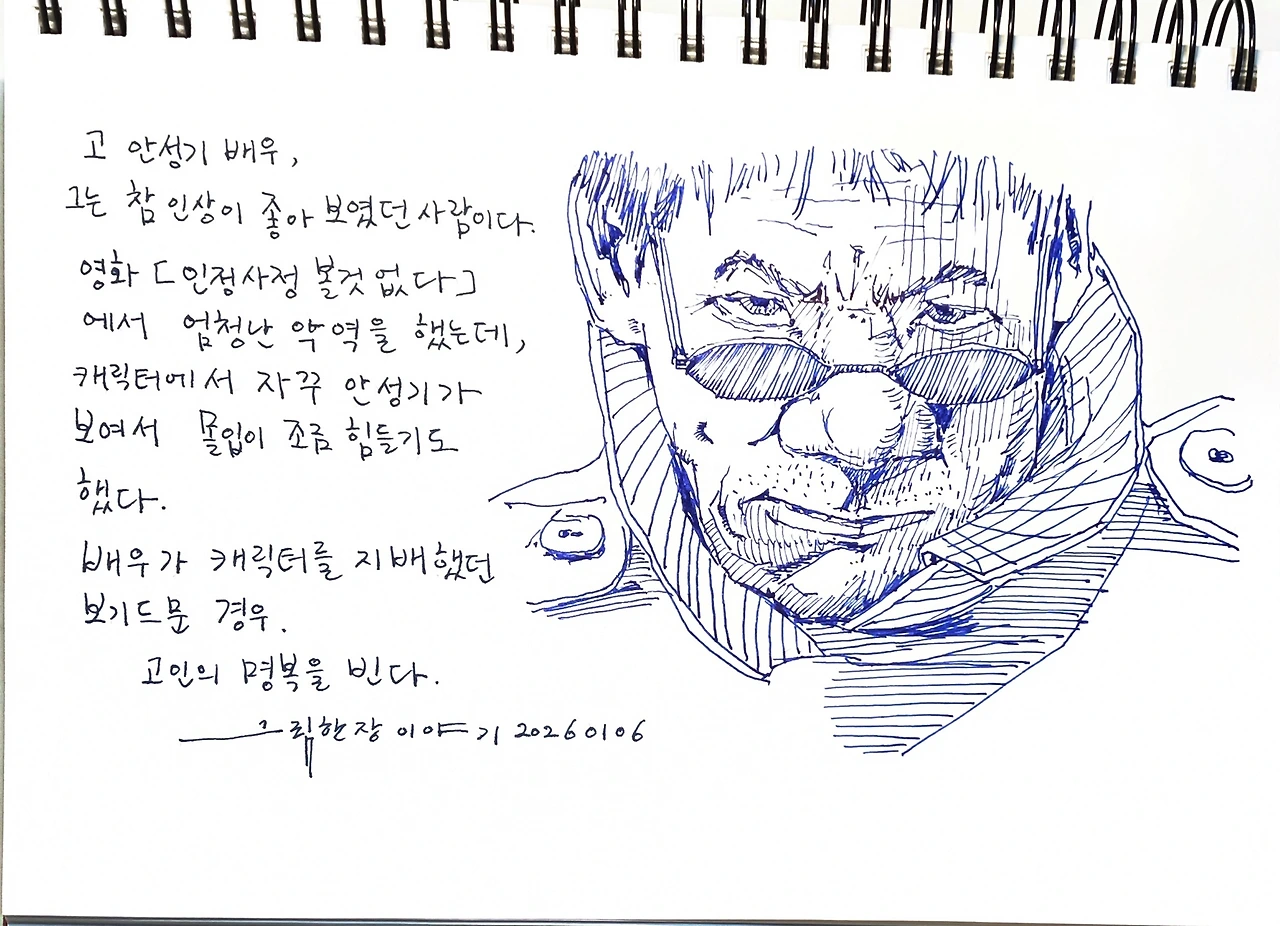 고 안성기 배우,
그는 참 인상이 좋아 보였던 사람이다.
영화 [인정사정 볼것 없다]
에서 엄청난 악역을 했는데,
캐릭터에서 자꾸 안성기가
보여서 몰입이 조금 힘들기도
했다.
배우가 캐릭터를 지배했던
보기드문 경우.
고인의 명복을 빈다.
그림한장 이야기 20260106